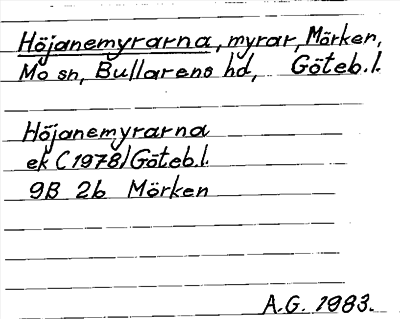 Höjanemyrarna, myrar, Mörken,
Mo sn, Bullarens hd, Göteb.l.
Höjanemyrarna
ek (1978) Göteb.l.
9B 2b Mörken
A.G. 1983.